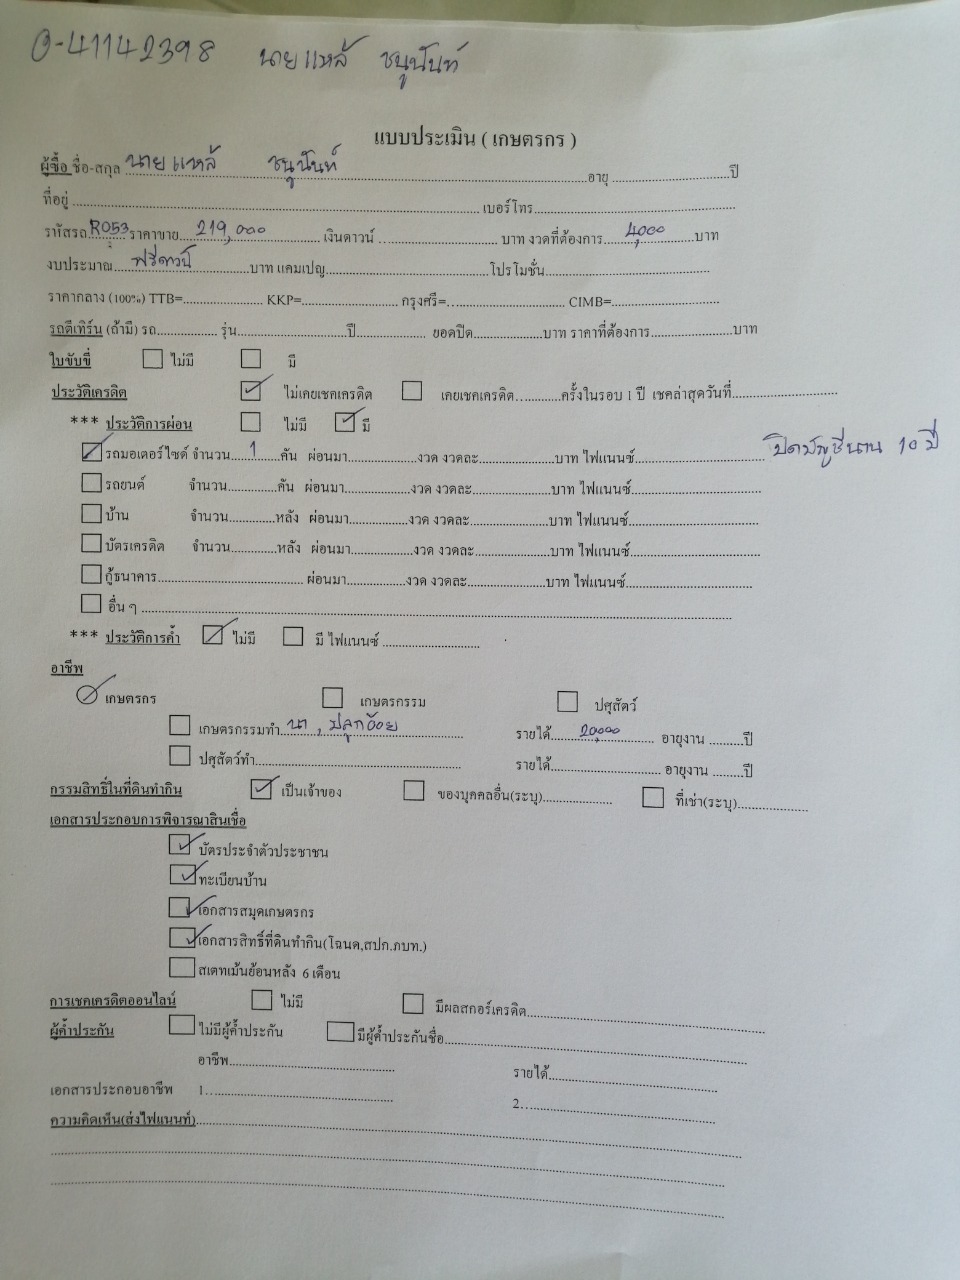 0-41142398 นายแหล้ ชนูนันท์
แบบประเมิน ( เกษตรกร )
ผู้ซื้อ ชื่อ-สกุล นายแหล้ ชนูนันท์ อายุ ปี
ที่อยู่ เบอร์โทร
รหัสรถ R053 ราคาขาย 219,000 เงินดาวน์ บาท งวดที่ต้องการ 4,000 บาท
งบประมาณ ฟรีดาวน์ บาท แคมเปญ โปรโมชั่น
ราคากลาง (100%) TTB= KKP= กรุงศรี= CIMB=
รถตีเทิร์น (ถ้ามี) รถ รุ่น ปี ยอดปิด บาท ราคาที่ต้องการ บาท
ใบขับขี่ ไม่มี มี
ประวัติเครดิต ไม่เคยเชคเครดิต เคยเชคเครดิต ครั้งในรอบ 1 ปี เชคล่าสุดวันที่
*** ประวัติการผ่อน ไม่มี มี
รถมอเตอร์ไซด์ จำนวน 1 คัน ผ่อนมา งวด งวดละ บาท ไฟแนนซ์ ปิดบัญชีนาน 10 ปี
รถยนต์ จำนวน คัน ผ่อนมา งวด งวดละ บาท ไฟแนนซ์
บ้าน จำนวน หลัง ผ่อนมา งวด งวดละ บาท ไฟแนนซ์
บัตรเครดิต จำนวน หลัง ผ่อนมา งวด งวดละ บาท ไฟแนนซ์
กู้ธนาคาร ผ่อนมา งวด งวดละ บาท ไฟแนนซ์
อื่น ๆ
*** ประวัติการค้ำ ไม่มี มี ไฟแนนซ์
อาชีพ
เกษตรกร เกษตรกรรม ปศุสัตว์
เกษตรกรรมทำ นา , ปลูกอ้อย รายได้ 20,000 อายุงาน ปี
ปศุสัตว์ทำ รายได้ อายุงาน ปี
กรรมสิทธิ์ในที่ดินทำกิน เป็นเจ้าของ ของบุคคลอื่น(ระบุ) ที่เช่า(ระบุ)
เอกสารประกอบการพิจารณาสินเชื่อ
บัตรประจำตัวประชาชน
ทะเบียนบ้าน
เอกสารสมุดเกษตรกร
เอกสารสิทธิ์ที่ดินทำกิน(โฉนด,สปก.ภบท.)
สเตทเม้นย้อนหลัง 6 เดือน
การเชคเครดิตออนไลน์ ไม่มี มีผลสกอร์เครดิต
ผู้ค้ำประกัน ไม่มีผู้ค้ำประกัน มีผู้ค้ำประกันชื่อ
อาชีพ รายได้
เอกสารประกอบอาชีพ 1. 2.
ความคิดเห็น(ส่งไฟแนนท์)